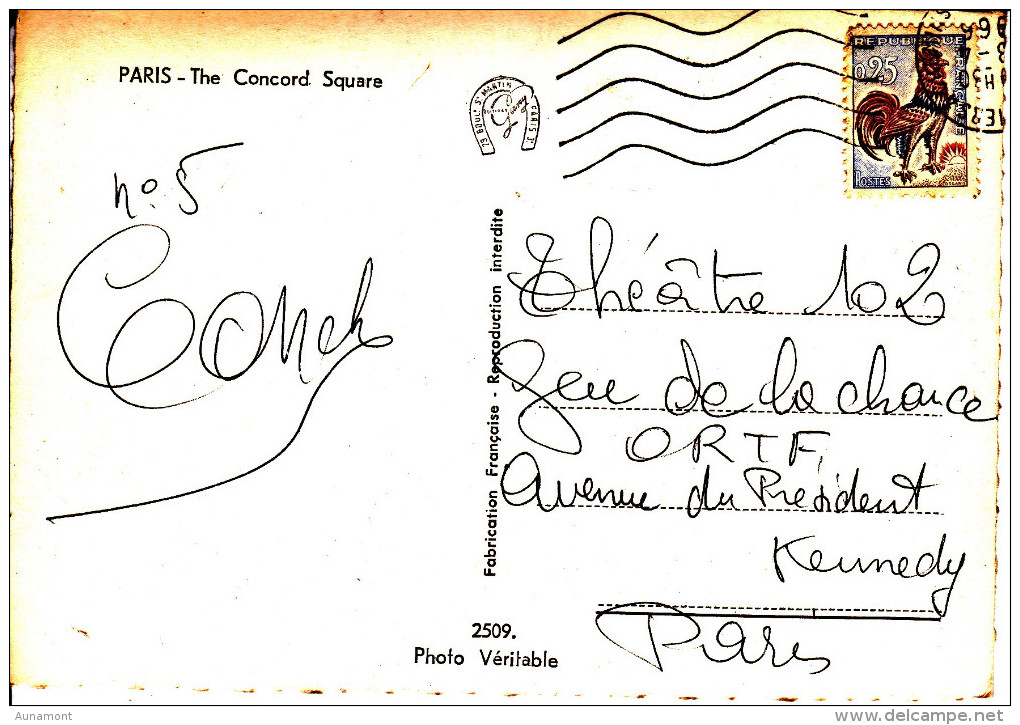 PARIS - The Concord Square
79 BOULd St MARTIN
PARIS 3e
REPUBLIQUE FRANÇAISE
0,25
POSTES
no. 5
Théâtre 102
Jeu de la chance
ORTF,
Avenue du President
Kennedy
Paris
Fabrication Française - Reproduction interdite
2509.
Photo Véritable
Aunamont
delcampe.net